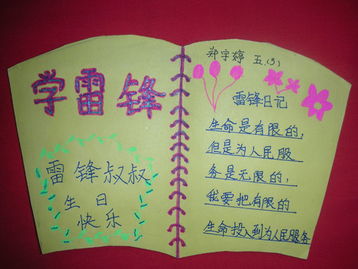 学雷锋
雷锋叔叔
生日
快乐
郑宇婷 五(3)
雷锋日记
生命是有限的,
但是为人民服
务是无限的,
我要把有限的
生命投入到为人民服务